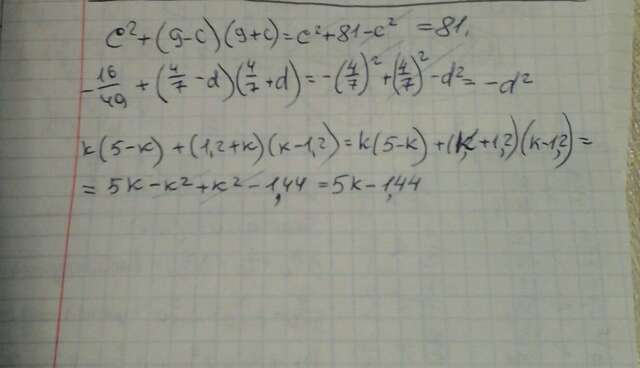 c²+(9-c)(9+c)=c²+81-c² =81.
-16/49+(4/7-d)(4/7+d)=-(4/7)²+(4/7)²-d²=-d²
k(5-k)+(1,2+k)(k-1,2)=k(5-k)+(k+1,2)(k-1,2)=
=5k-k²+k²-1,44=5k-1,44